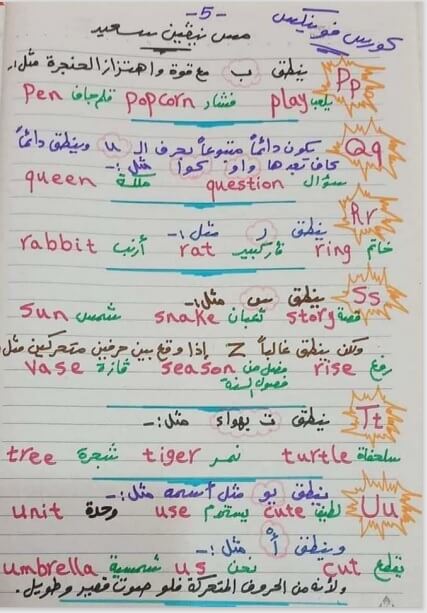 كورس فونيكس -5- مس نيڤين سعيد
Pp ينطق ب مع قوة واهتزاز الحنجرة مثل:-
play يلعب popcorn فشار pen قلم جاف
Qq يكون دائماً متبوعاً بحرف الـ u وينطق دائماً
كاف بعدها واو كوا مثل :-
question سؤال queen ملكة
Rr ينطق ر مثل :-
ring خاتم rat فأر كبير rabbit أرنب
Ss ينطق س مثل :-
story قصة snake ثعبان sun شمس
ولكن ينطق غالباً Z إذا وقع بين حرفين متحركين مثل
rise رفع season فصل من vase فازة
فصول السنة
Tt ينطق ت بهواء مثل :-
turtle سلحفاة tiger نمر tree شجرة
Uu ينطق يو مثل أسمه مثل :-
cute لطيف use يستخدم unit وحدة
وينطق أَ مثل :-
cut يقطع us نحن umbrella شمسية
ولأنه من الحروف المتحركة فلو صوت قصير وطويل.